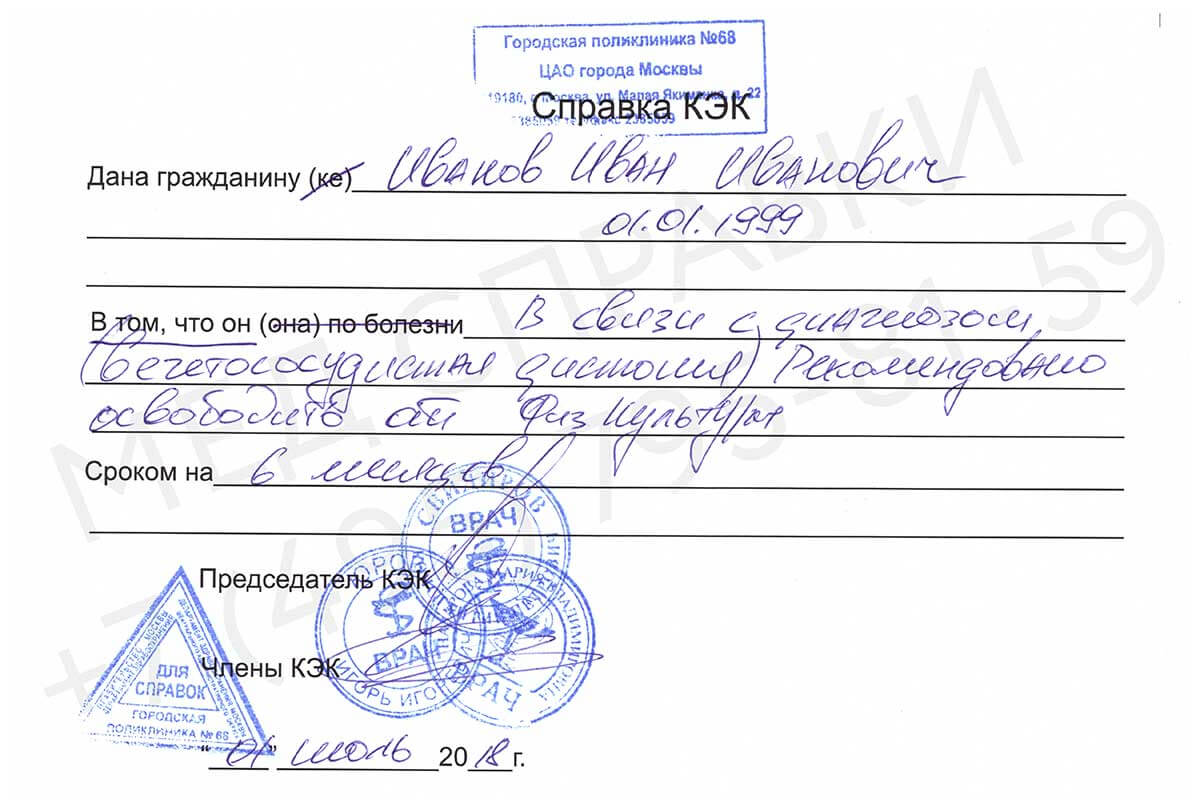 Городская поликлиника №68
ЦАО города Москвы
г. Москва, ул. Малая Якиманка, д. 22
2385059
Справка КЭК
Дана гражданину (ке) Иванов Иван Иванович
01.01.1999
В том, что он (она) по болезни В связи с диагнозом
(вегетососудистая дистония) Рекомендовано
освободить от Физкультуры
Сроком на 6 месяцев
ВРАЧ
Председатель КЭК
МАРИЯ ВЛАДИМИРОВНА
ВРАЧ
ИГОРЬ ИГОРЕВИЧ
ВРАЧ
Члены КЭК
ДЛЯ
СПРАВОК
ГОРОДСКАЯ
ПОЛИКЛИНИКА № 68
"01" июль 2018 г.
МЕД СПРАВКИ